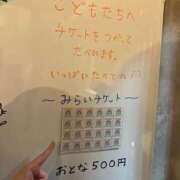 こどもたちへ
チケットをつかって
たべれます。
いっぱいたべてね!!
～みらいチケット～
おとな500円